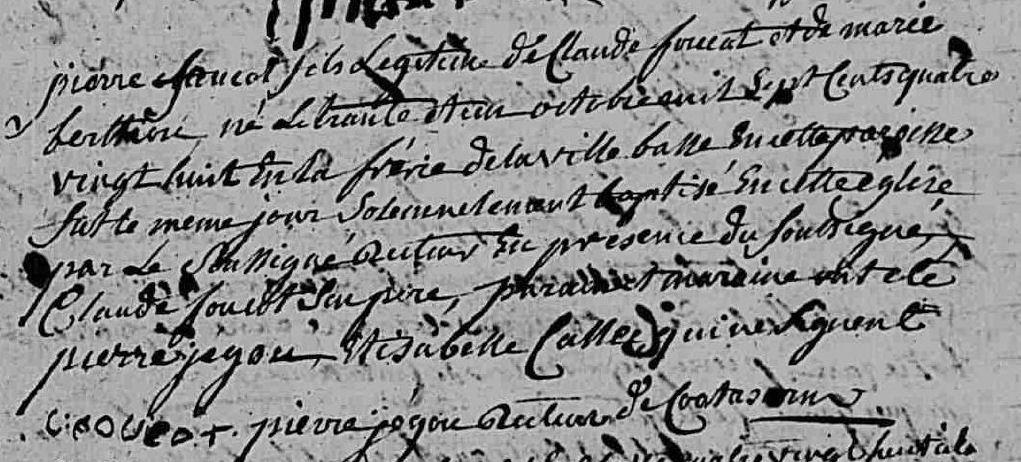 pierre foucat fils Legitime de Claude foucat et de marie
berthèvé né Le trante et un octobre mil Sept Cents quatre
vingt huit En La frérie de la ville basse En cette paroisse
fut le meme jour Solemnelement baptisé En cette eglise
par Le Soussigné Recteur En présence du Soussigné
Claude foucat Son pere, parain et maraine ont eté
pierre jegou, et isabelle Calle qui ne Signent
C: FOUCAT. pierre jégou Recteur de Coatascorn
quatre vingt huit